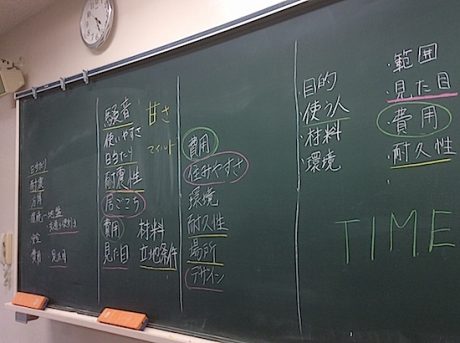 日当たり
耐震
費用
見た目
騒音
甘さ
使いやすさ
マイルド
日当たり
耐更性
居ごこち
費用 材料
見た目 立地条件
費用
住みやすさ
環境
耐久性
場所
デザイン
目的
使う人
・材料
・環境
・範囲
・見た目
・費用
・耐久性
TIME